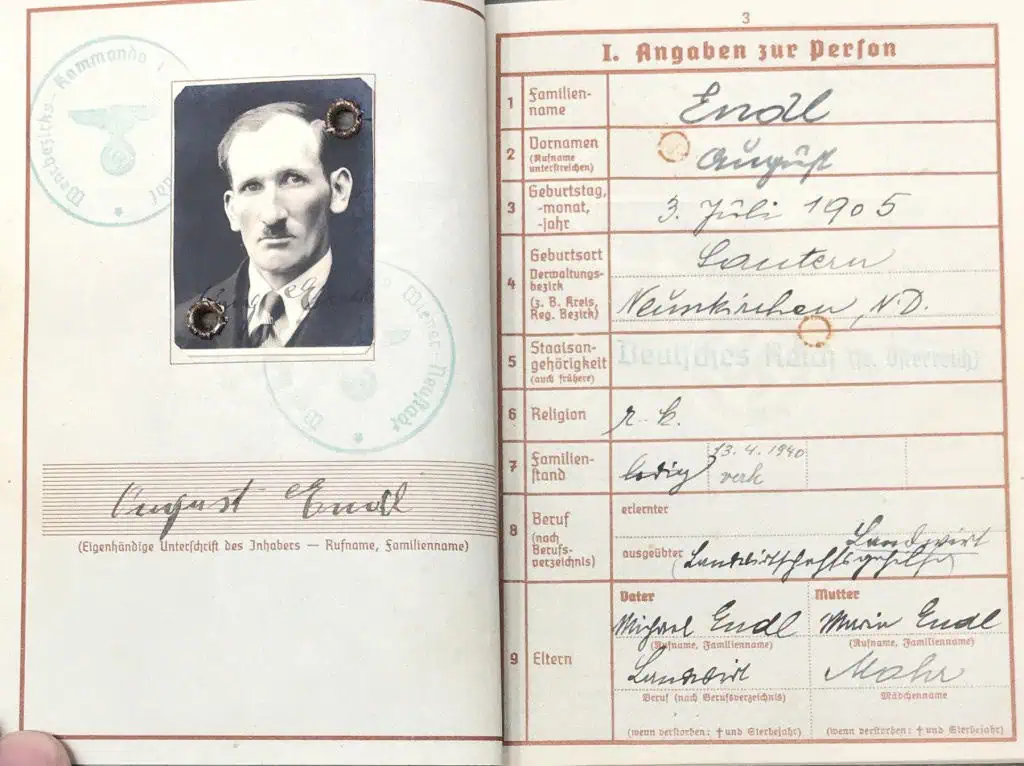 Wehrbezirks-Kommando
Wiener-Neustadt
August Endl
(Eigenhändige Unterschrift des Inhabers — Rufname, Familienname)
3
I. Angaben zur Person
1 Familien-
name
Endl
2 Vornamen
(Rufname
unterstreichen)
August
3 Geburtstag,
-monat,
-jahr
3. Juli 1905
4 Geburtsort
Verwaltungs-
bezirk
(z. B. Kreis,
Reg. Bezirk)
Lautern
Neunkirchen, N.D.
5 Staatsan-
gehörigkeit
(auch frühere)
Deutsches Reich (fr. Österreich)
6 Religion
r. k.
7 Familien-
stand
ledig
13. 4. 1940
verh
8 Beruf
(nach
Berufs-
verzeichnis)
erlernter
ausgeübter
Landwirt
(Landwirtschaftsgehilfe)
9 Eltern
Vater
Michael Endl
(Rufname, Familienname)
Landwirt
Beruf (nach Berufsverzeichnis)
(wenn verstorben: † und Sterbejahr)
Mutter
Maria Endl
(Rufname, Familienname)
Mohr
Mädchenname
(wenn verstorben: † und Sterbejahr)